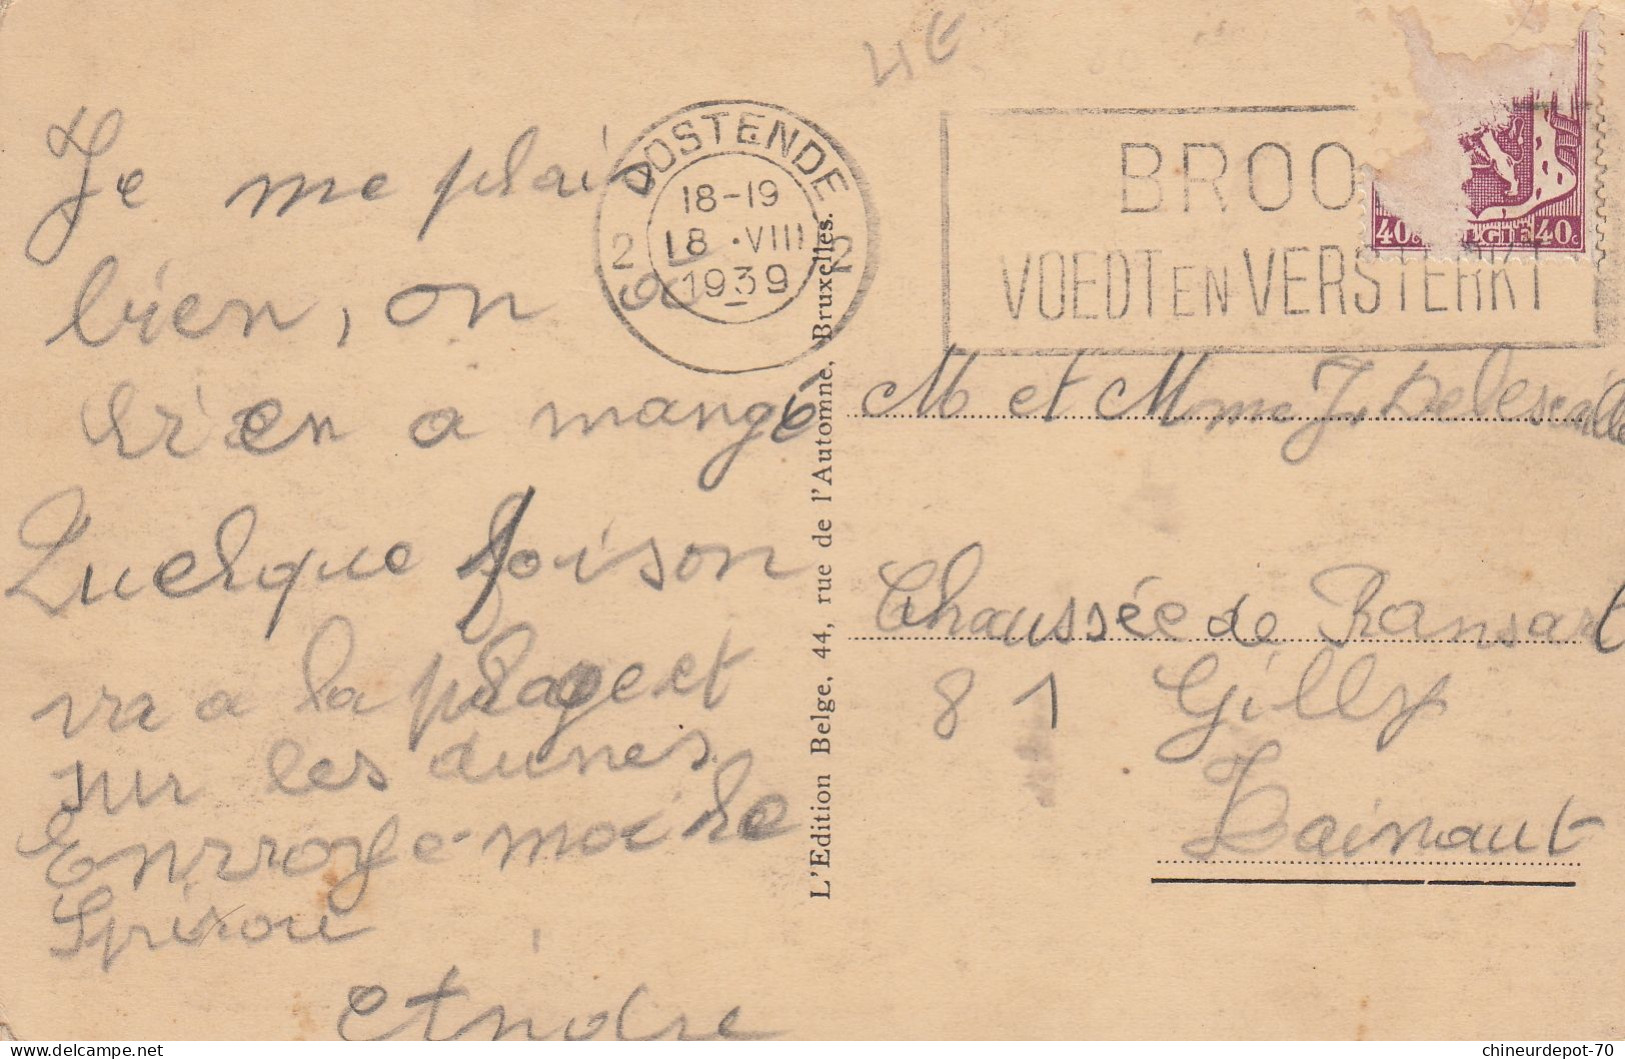 4€
Je me plais
bien, on a
bien a mangé
Quelque foison
va a la plage et
sur les dunes
Envoye-moi le
Spirou
André
OOSTENDE
18-19
2 18 .VIII 2
1939
BROO
VOEDT EN VERSTERKT
40c 40c
L'Edition Belge, 44, rue de l'Automne, Bruxelles.
M et Mme J. Delescaille
Chaussée de Ransart
81 Gilly
Hainaut
chineurdepot-70